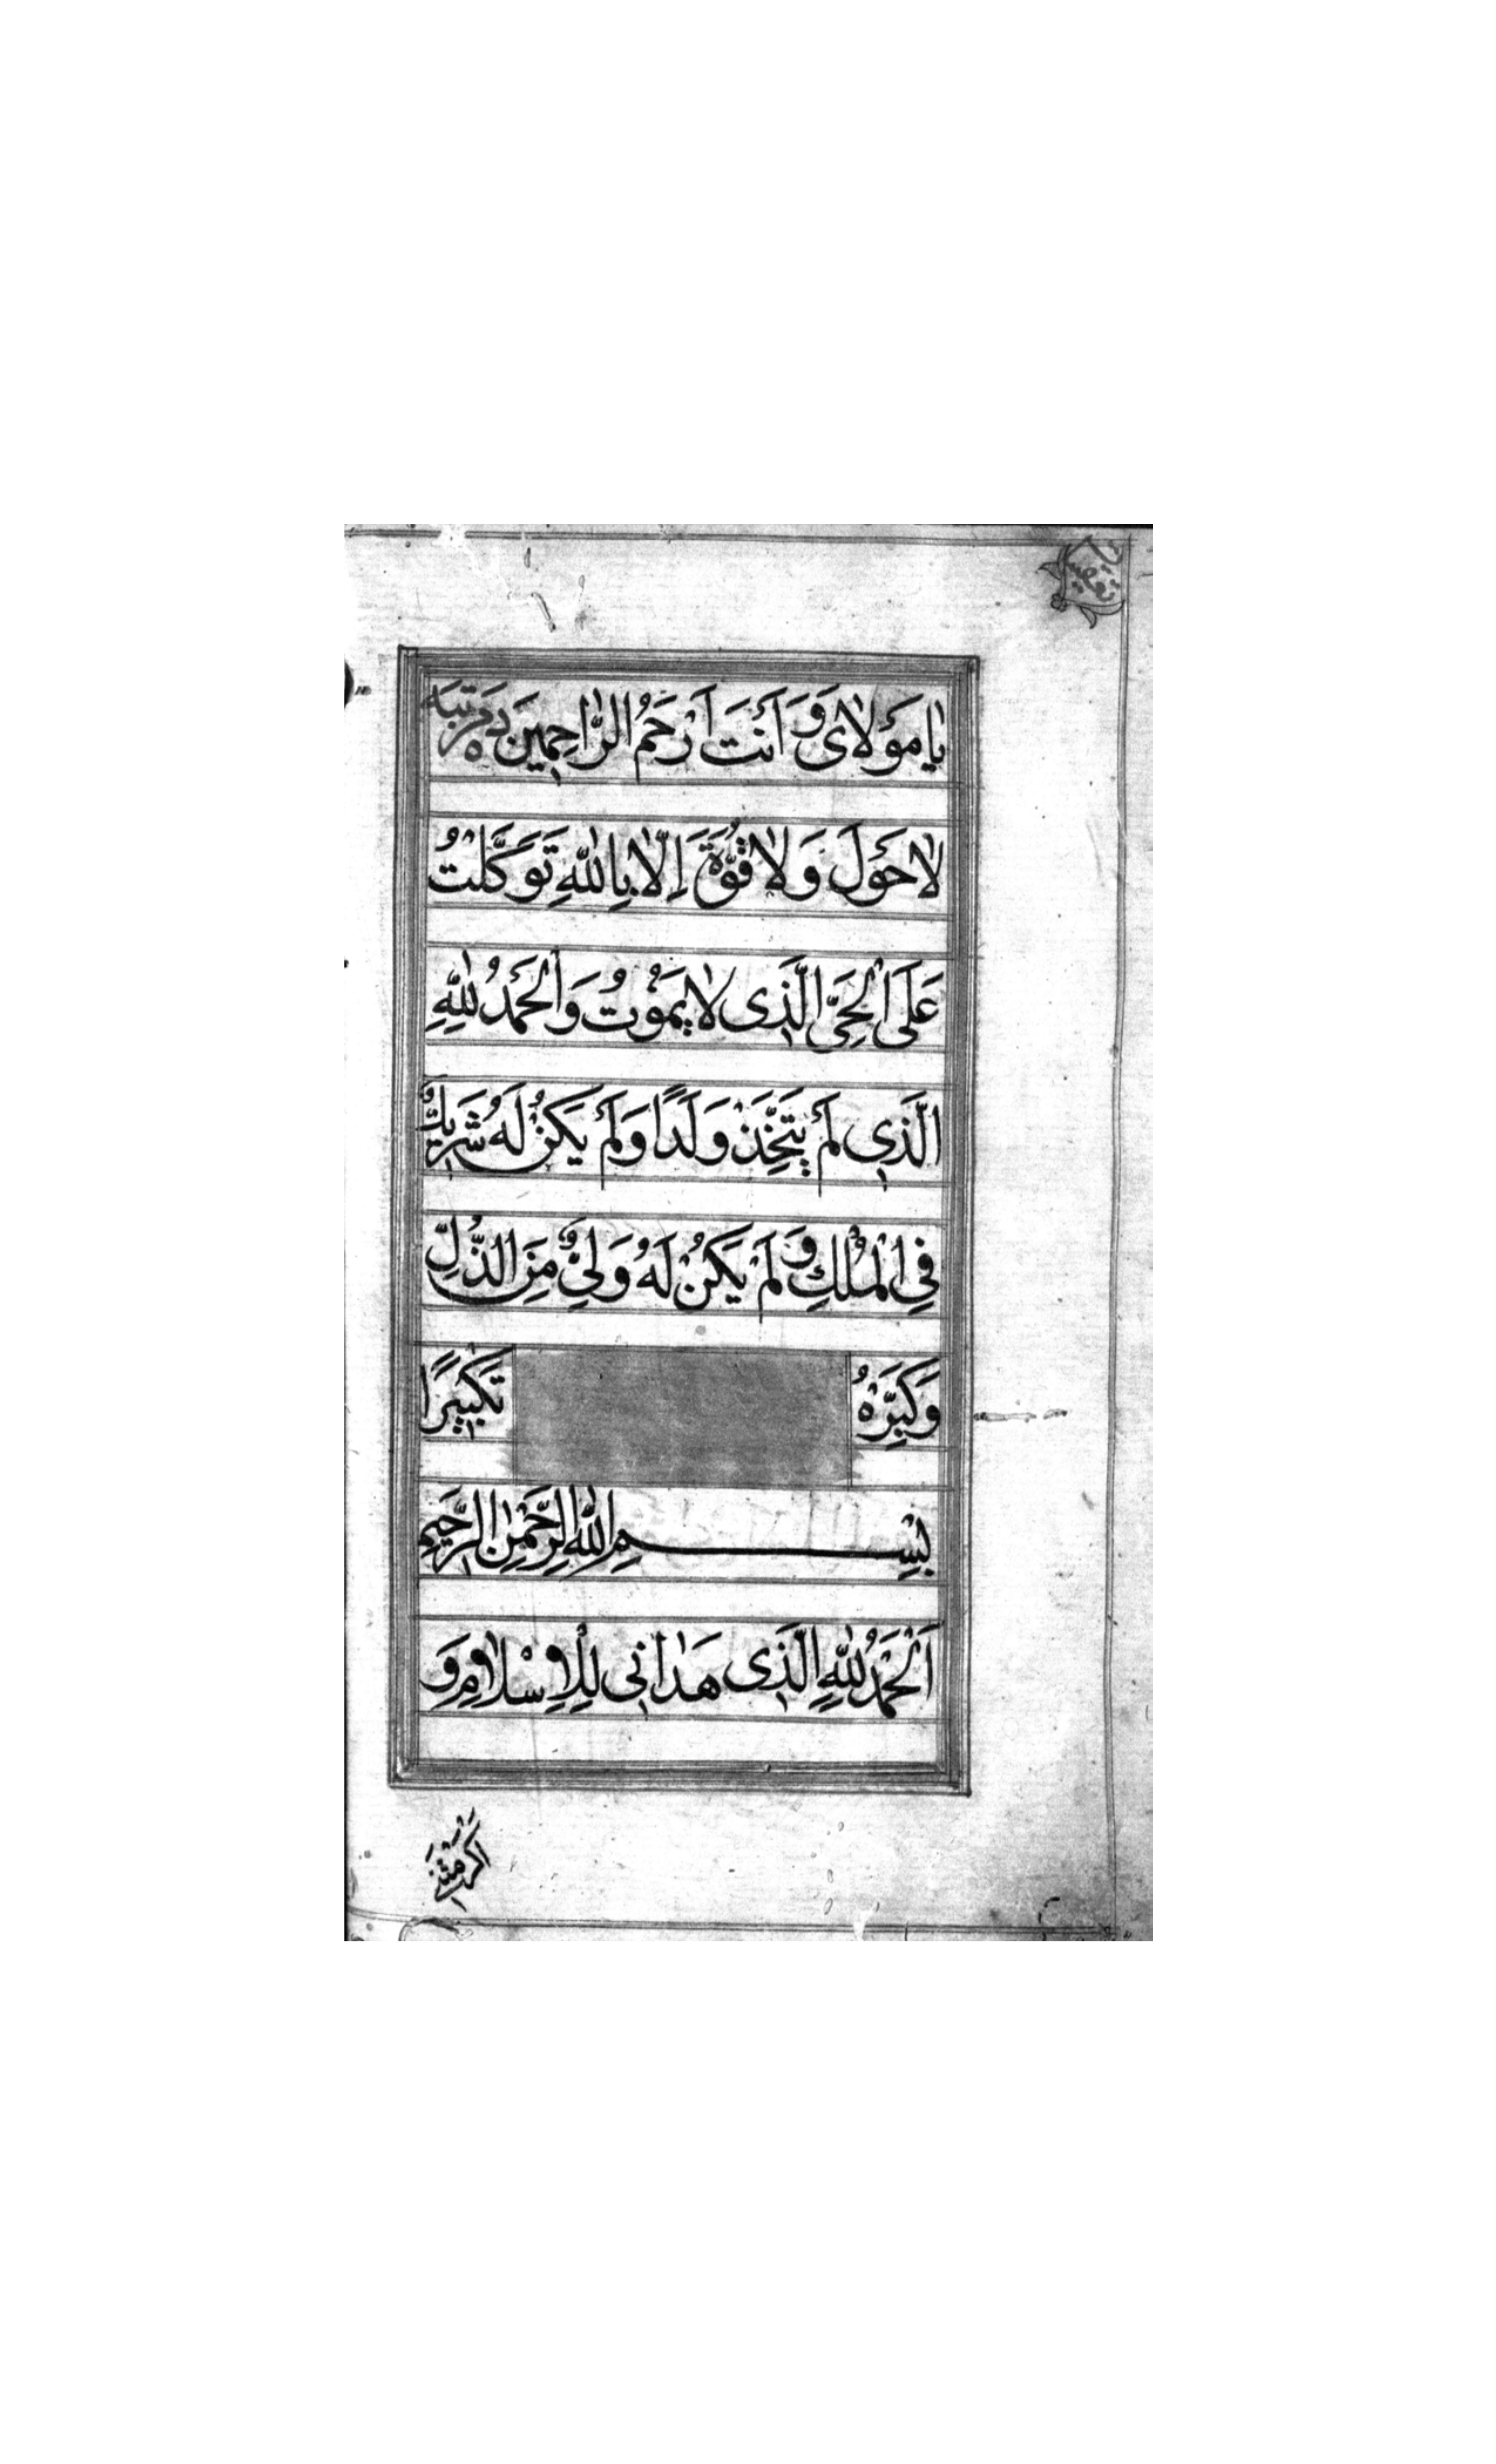 يٰا مَوْلاٰىَ وَ اَنْتَ اَرْحَمُ الرّٰاحِمِينَ ده مرتبه
لاٰحَوْلَ وَلاٰ قُوَّةَ اِلّاٰ بِاللّٰهِ تَوَكَّلْتُ
عَلَى الْحَىِّ الَّذِى لاٰ يَمُوْتُ وَالْحَمْدُ لِلّٰهِ
الَّذِى لَمْ يَتَّخِذْ وَلَدًا وَلَمْ يَكُنْ لَهُ شَرِيكٌ
فِى الْمُلْكِ وَ لَمْ يَكُنْ لَهُ وَلِىٌّ مِنَ الذُّلِّ
وَكَبِّرْهُ تَكْبِيرًا
بِسْمِ اللّٰهِ الرَّحْمٰنِ الرَّحِيمِ
اَلْحَمْدُ لِلّٰهِ الَّذِى هَدٰانِى لِلْاِسْلاٰمِ وَ
اَكْرَمَنِى